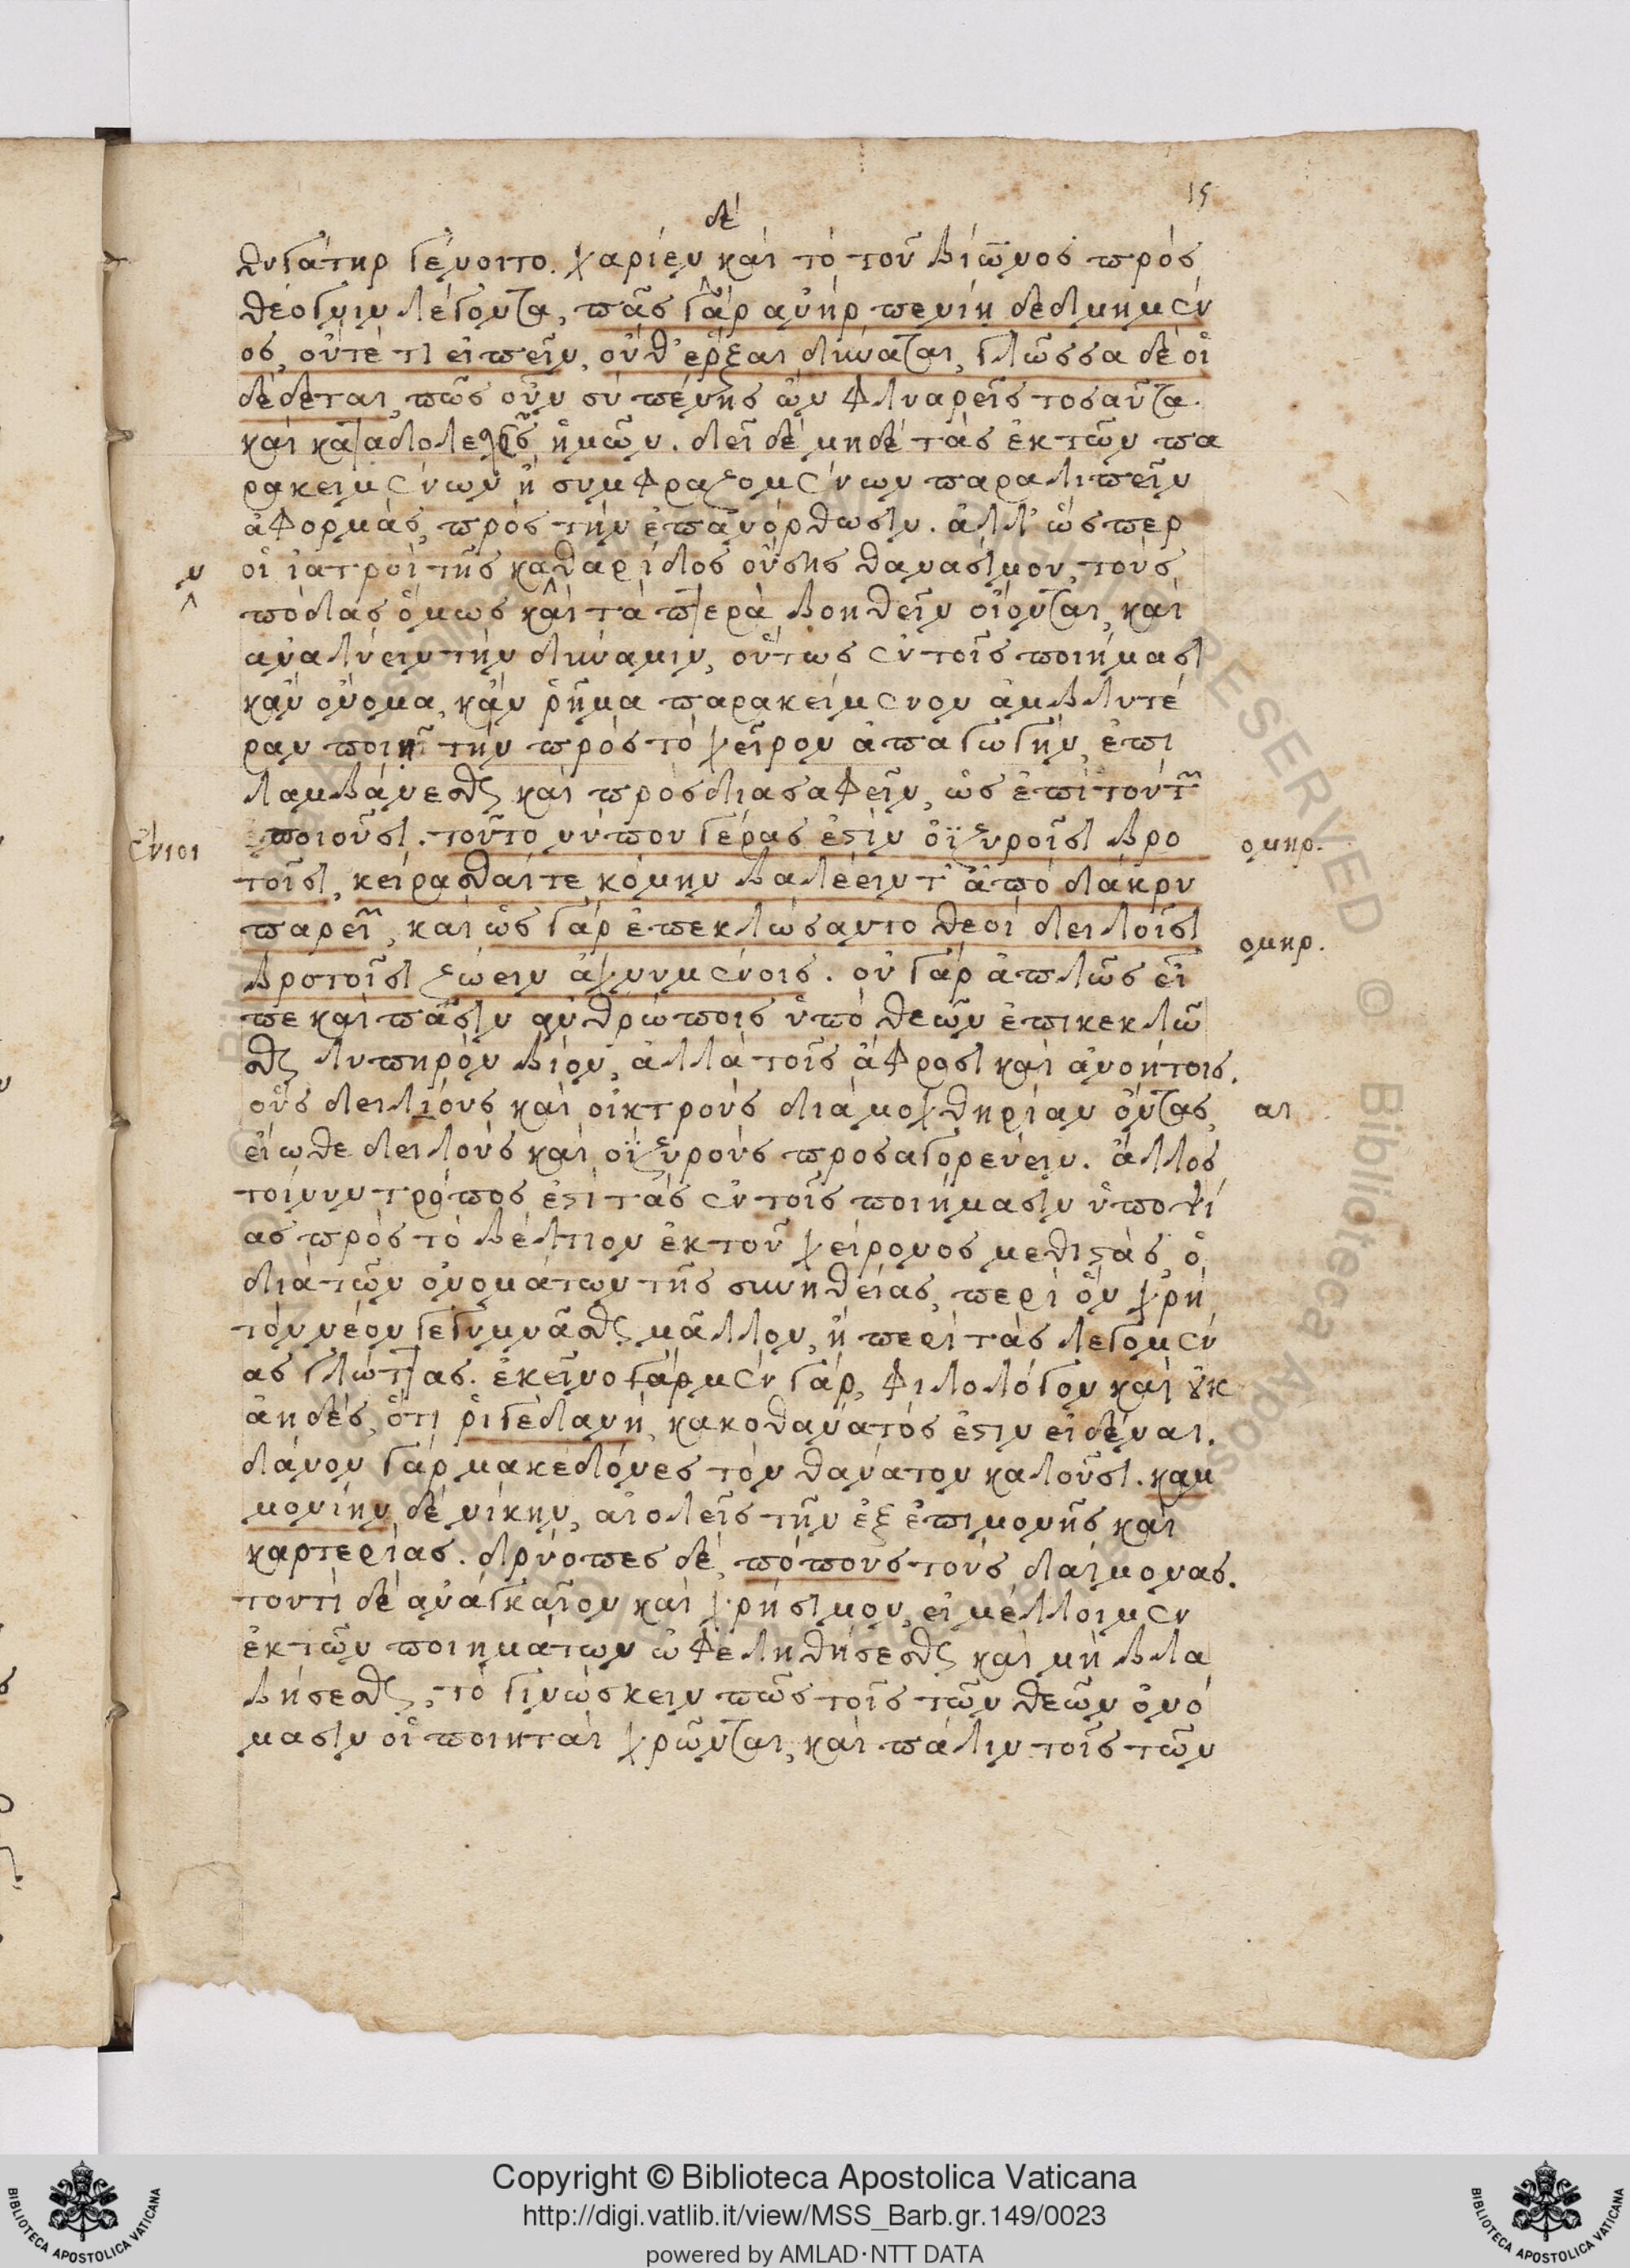 15
δὲ
θυγάτηρ γένοιτο. χαρίεν καὶ τὸ τοῦ βίωνος πρὸς
θέογνιν λέγοντα, πᾶς γὰρ ἀνὴρ πενίη δεδμημέν
ος, οὔτέ τι εἰπεῖν, οὔθ' ἔρξαι δύναται, γλῶσσα δέ οἱ
δέδεται, πῶς οὖν σὺ πένης ὢν φλυαρεῖς τοσαῦτα.
καὶ καταδολεσχεῖς ἡμῶν. δεῖ δὲ μηδὲ τὰς ἐκ τῶν πα
ρακειμένων ἢ συμφραζομένων παραλιπεῖν
ἀφορμὰς, πρὸς τὴν ἐπανόρθωσιν. ἀλλ' ὥσπερ
ν οἱ ἰατροὶ τῆς καθαρίδος οὔσης θανασίμου, τοὺς
πόδας ὅμως καὶ τὰ πτερὰ βοηθεῖν οἴονται, καὶ
ἀναλύειν τὴν δύναμιν, οὕτως ἐν τοῖς ποιήμασι
κἂν ὄνομα, κἂν ῥῆμα παρακείμενον ἀμβλυτέ
ραν ποιῇ τὴν πρὸς τὸ χεῖρον ἀπαγωγὴν, ἐπι
λαμβάνεσθαι καὶ προσδιασαφεῖν, ὡς ἐπὶ τούτων
ἔνιοι ποιοῦσι. τοῦτο νύ που γέρας ἐστὶν ὀϊζυροῖσι βρο ομηρ.
τοῖσι, κείρασθαί τε κόμην βαλέειν τ' ἀπὸ δάκρυ
παρεῖ, καὶ ὣς γὰρ ἐπεκλώσαντο θεοὶ δειλοῖσι ομηρ.
βροτοῖσι ζώειν ἀχνυμένοις. οὐ γὰρ ἁπλῶς εἶ
πε καὶ πᾶσιν ἀνθρώποις ὑπὸ θεῶν ἐπικεκλῶ
σθαι λυπηρὸν βίον, ἀλλὰ τοῖς ἄφροσι καὶ ἀνοήτοις.
οὓς δειλίους καὶ οἰκτροὺς διὰ μοχθηρίαν ὄντας, αι
εἴωθε δειλοὺς καὶ οϊζυροὺς προσαγορεύειν. ἄλλος
τοίνυν τρόπος ἐστὶ τὰς ἐν τοῖς ποιήμασιν ὑποψί
ας πρὸς τὸ βέλτιον ἐκ τοῦ χείρονος μεθιστὰς, ὁ
διὰ τῶν ὀνομάτων τῆς συνηθείας, περὶ ὃν χρὴ
τὸν νέον γεγυμνᾶσθαι μᾶλλον, ἢ περὶ τὰς λεγομέν
ας γλώττας. ἐκεῖνο γὰρ μὲν γὰρ, φιλολόγον καὶ οὐκ
ἀηδὲς, ὅτι ῥιγεδανὴ, κακοθάνατός ἐστιν εἰδέναι.
δάνον γὰρ μακεδόνες τὸν θάνατον καλοῦσι. καμ
μονίην δὲ νίκην, αἰολεῖς τὴν ἐξ ἐπιμονῆς καὶ
καρτερίας. δρύοπες δὲ, πόπους τοὺς δαίμονας.
τουτὶ δὲ ἀναγκαῖον καὶ χρήσιμον, εἰ μέλλοιμεν
ἐκ τῶν ποιημάτων ὠφεληθήσεσθαι καὶ μὴ βλα
βήσεσθαι, τὸ γινώσκειν πῶς τοῖς τῶν θεῶν ὀνό
μασιν οἱ ποιηταὶ χρῶνται, καὶ πάλιν τοῖς τῶν
DIGITA
RESERVED © Biblioteca Apostolica
Copyright © Biblioteca Apostolica Vaticana
http://digi.vatlib.it/view/MSS_Barb.gr.149/0023
powered by AMLAD·NTT DATA
BIBLIOTECA APOSTOLICA VATICANA
BIBLIOTECA APOSTOLICA VATICANA